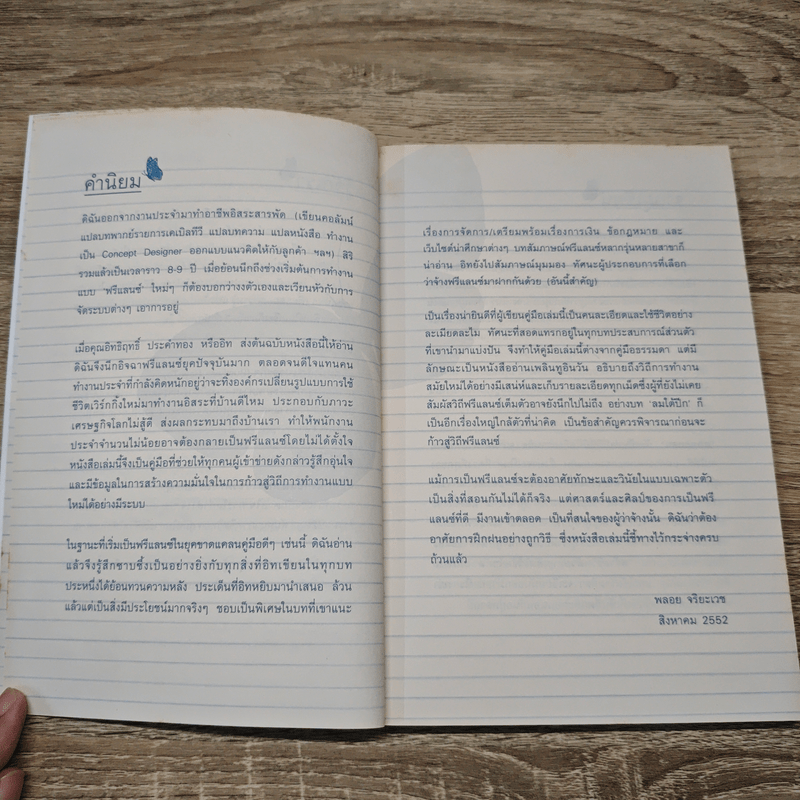 คำนิยม
ดิฉันออกจากงานประจำมาทำอาชีพอิสระสารพัด (เขียนคอลัมน์
แปลบทพากย์รายการเคเบิลทีวี แปลบทความ แปลหนังสือ ทำงาน
เป็น Concept Designer ออกแบบแนวคิดให้กับลูกค้า ฯลฯ) สิริ
รวมแล้วเป็นเวลาราว 8-9 ปี เมื่อย้อนนึกถึงช่วงเริ่มต้นการทำงาน
แบบ 'ฟรีแลนซ์' ใหม่ๆ ก็ต้องบอกว่างงตัวเองและเวียนหัวกับการ
จัดระบบต่างๆ เอาการอยู่
เมื่อคุณอิทธิฤทธิ์ ประคำทอง หรืออิท ส่งต้นฉบับหนังสือนี้ให้อ่าน
ดิฉันจึงนึกอิจฉาฟรีแลนซ์ยุคปัจจุบันมาก ตลอดจนดีใจแทนคน
ทำงานประจำที่กำลังคิดหนักอยู่ว่าจะทิ้งองค์กรเปลี่ยนรูปแบบการใช้
ชีวิตเวิร์กกิ้งใหม่มาทำงานอิสระที่บ้านดีไหม ประกอบกับภาวะ
เศรษฐกิจโลกไม่สู้ดี ส่งผลกระทบมาถึงบ้านเรา ทำให้พนักงาน
ประจำจำนวนไม่น้อยอาจต้องกลายเป็นฟรีแลนซ์โดยไม่ได้ตั้งใจ
หนังสือเล่มนี้จึงเป็นคู่มือที่ช่วยให้ทุกคนผู้เข้าข่ายดังกล่าวรู้สึกอุ่นใจ
และมีข้อมูลในการสร้างความมั่นใจในการก้าวสู่วิถีการทำงานแบบ
ใหม่ได้อย่างมีระบบ
ในฐานะที่เริ่มเป็นฟรีแลนซ์ในยุคขาดแคลนคู่มือดีๆ เช่นนี้ ดิฉันอ่าน
แล้วจึงรู้สึกซาบซึ้งเป็นอย่างยิ่งกับทุกสิ่งที่อิทเขียนในทุกบท
ประหนึ่งได้ย้อนทวนความหลัง ประเด็นที่อิทหยิบมานำเสนอ ล้วน
แล้วแต่เป็นสิ่งมีประโยชน์มากจริงๆ ชอบเป็นพิเศษในบทที่เขาแนะ
เรื่องการจัดการ/เตรียมพร้อมเรื่องการเงิน ข้อกฎหมาย และ
เว็บไซต์น่าศึกษาต่างๆ บทสัมภาษณ์ฟรีแลนซ์หลากรุ่นหลายสาขาก็
น่าอ่าน อิทยังไปสัมภาษณ์มุมมอง ทัศนะผู้ประกอบการที่เลือก
ว่าจ้างฟรีแลนซ์มาฝากกันด้วย (อันนี้สำคัญ)
เป็นเรื่องน่ายินดีที่ผู้เขียนคู่มือเล่มนี้เป็นคนละเอียดและใช้ชีวิตอย่าง
ละเมียดละไม ทัศนะที่สอดแทรกอยู่ในทุกบทประสบการณ์ส่วนตัว
ที่เขานำมาแบ่งปัน จึงทำให้คู่มือเล่มนี้ต่างจากคู่มือธรรมดา แต่มี
ลักษณะเป็นหนังสืออ่านเพลินทูอินวัน อธิบายถึงวิถีการทำงาน
สมัยใหม่ได้อย่างมีเสน่ห์และเก็บรายละเอียดทุกเม็ดซึ่งผู้ที่ยังไม่เคย
สัมผัสวิถีฟรีแลนซ์เต็มตัวอาจยังนึกไปไม่ถึง อย่างบท 'ลมใต้ปีก' ก็
เป็นอีกเรื่องใหญ่ใกล้ตัวที่น่าคิด เป็นข้อสำคัญควรพิจารณาก่อนจะ
ก้าวสู่วิถีฟรีแลนซ์
แม้การเป็นฟรีแลนซ์จะต้องอาศัยทักษะและวินัยในแบบเฉพาะตัว
เป็นสิ่งที่สอนกันไม่ได้ก็จริง แต่ศาสตร์และศิลป์ของการเป็นฟรี
แลนซ์ที่ดี มีงานเข้าตลอด เป็นที่สนใจของผู้ว่าจ้างนั้น ดิฉันว่าต้อง
อาศัยการฝึกฝนอย่างถูกวิธี ซึ่งหนังสือเล่มนี้ชี้ทางไว้กระจ่างครบ
ถ้วนแล้ว
พลอย จริยะเวช
สิงหาคม 2552